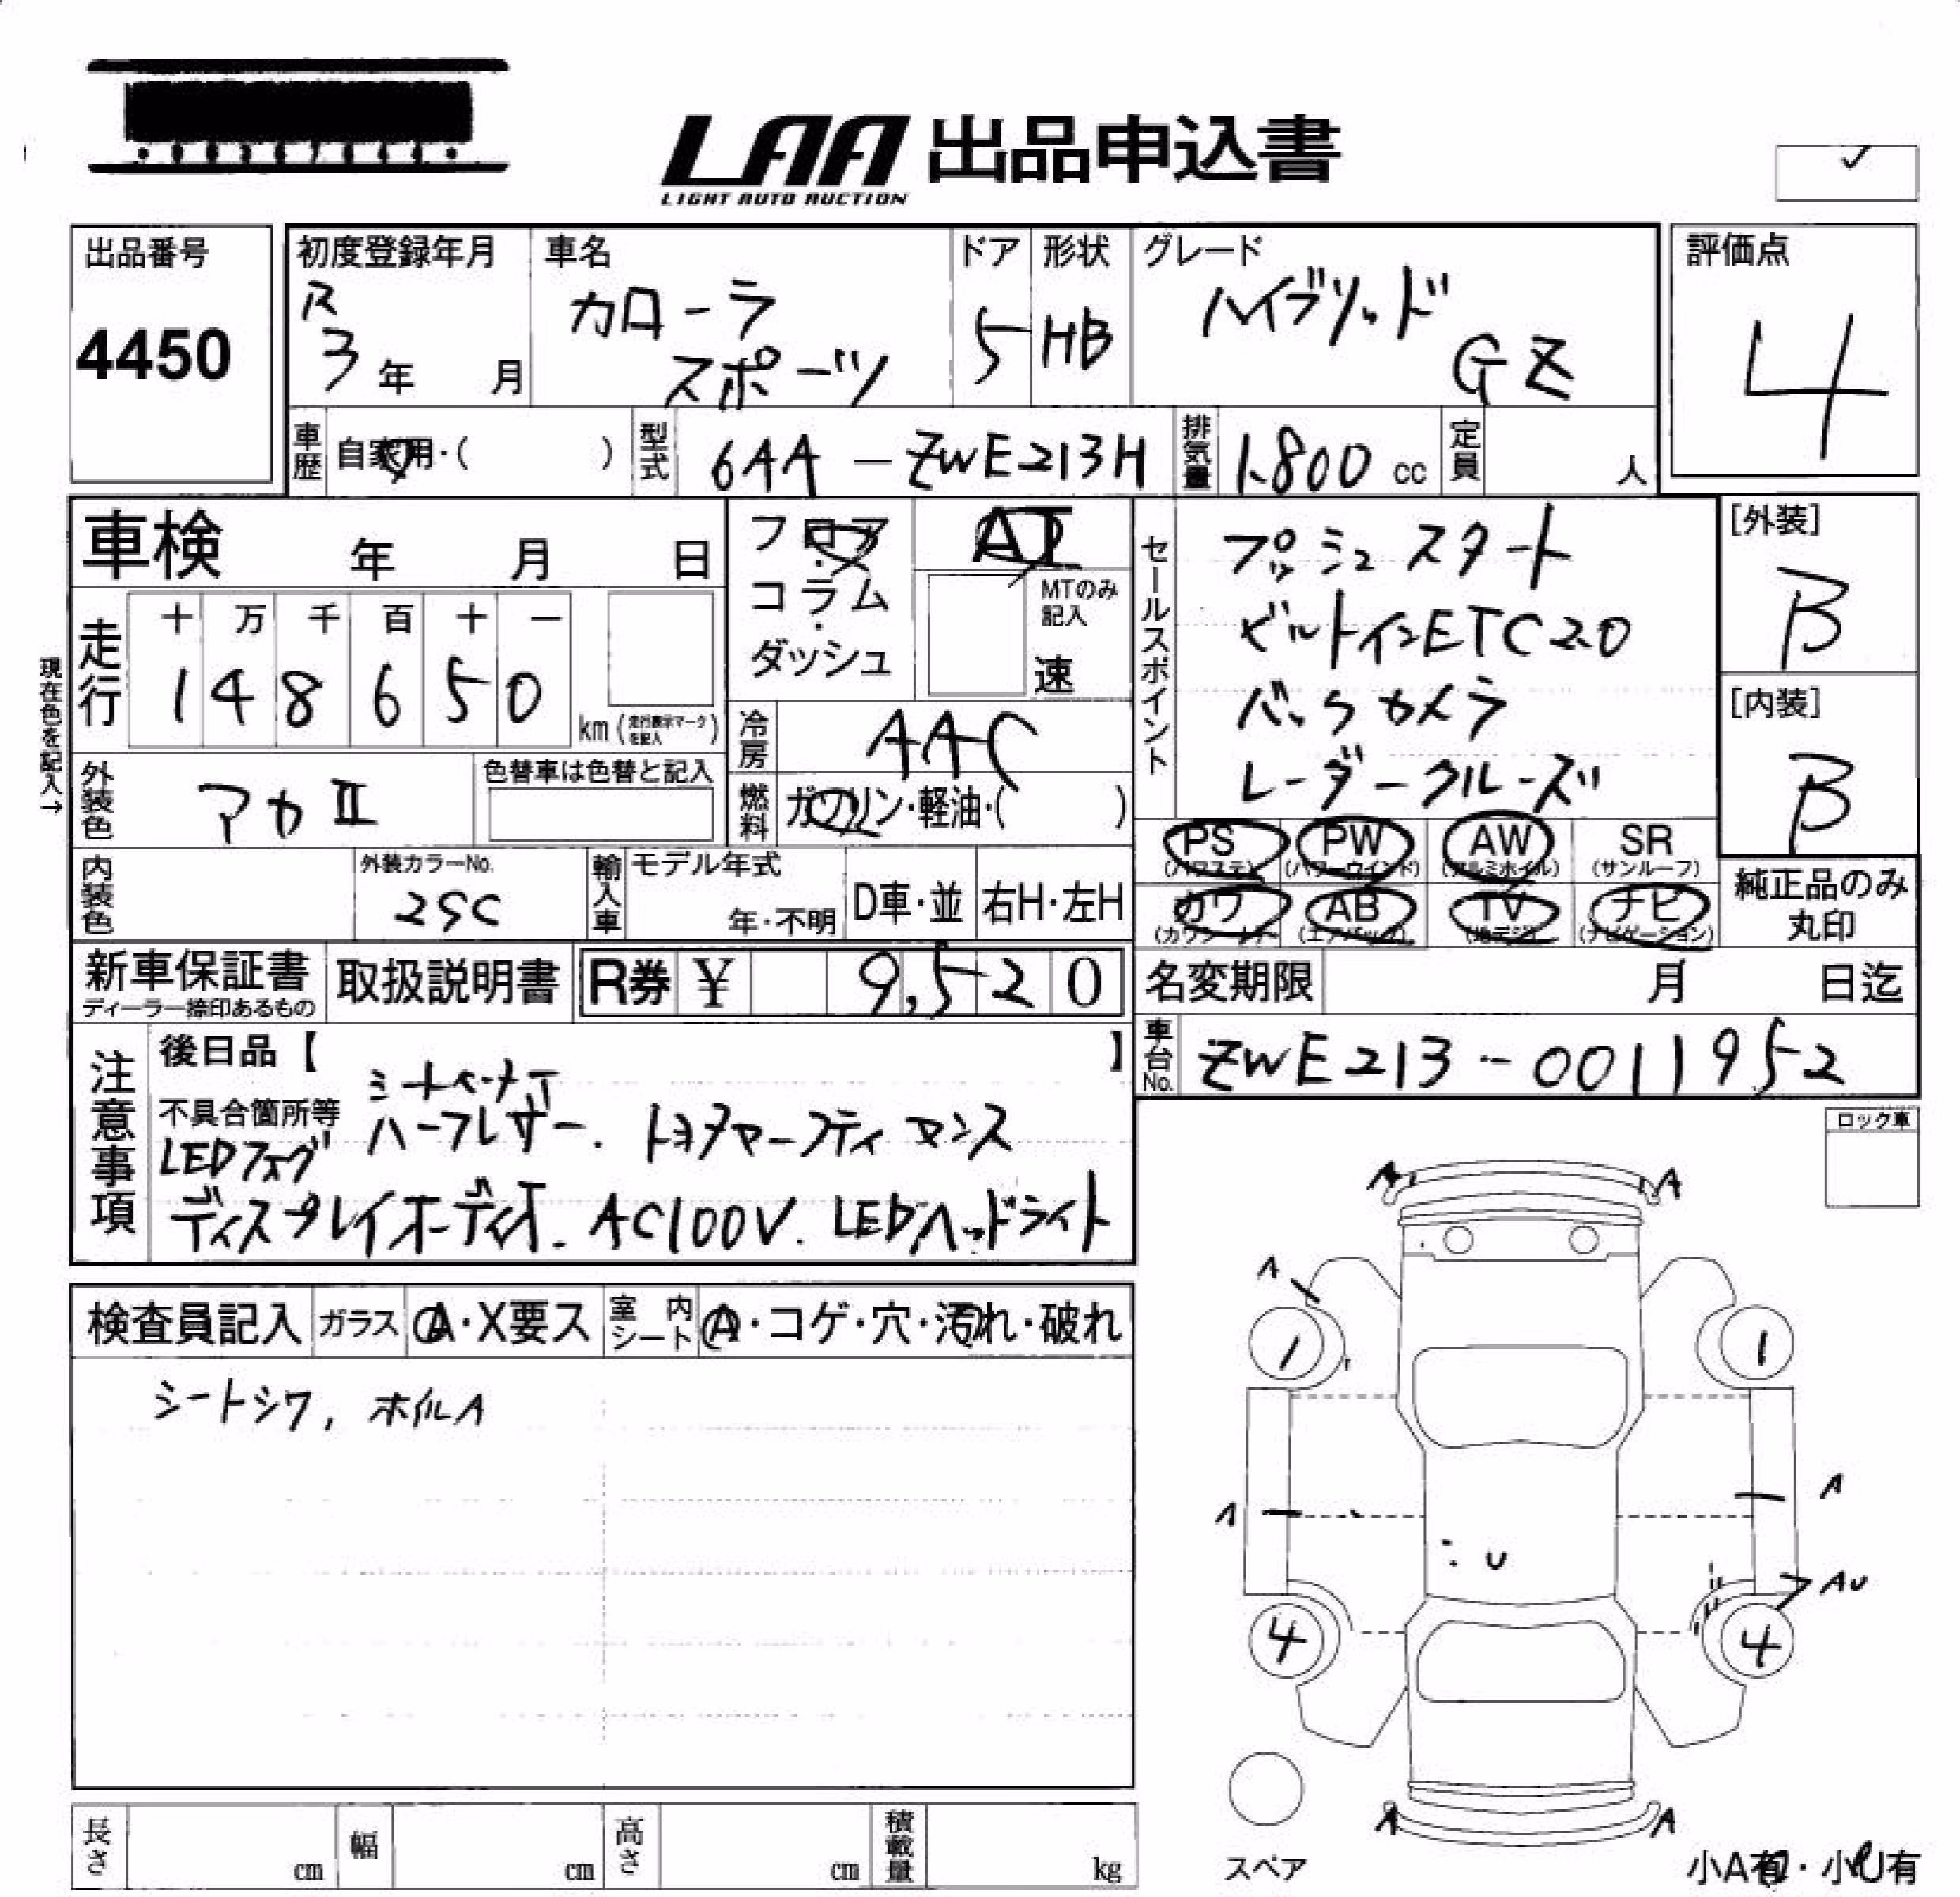 LAA 出品申込書
LIGHT AUTO AUCTION
出品番号
4450
初度登録年月
R
3年 月
車名
カローラ
スポーツ
ドア
5
形状
HB
グレード
ハイブリッド
GZ
評価点
4
車歴 自家用・( )
型式 6AA-ZWE213H
排気量 1.800 cc
定員 人
車検 年 月 日
フロア
・
コラム
・
ダッシュ
AT
MTのみ
記入
速
現在色を記入→
走行
十 万 千 百 十 一
1 4 8 6 5 0
km (走行表示マークを記入)
冷房 AAC
燃料 ガソリン・軽油・( )
外装色 アカⅡ
色替車は色替と記入
内装色
外装カラーNo.
2SC
輸入車
モデル年式
年・不明
D車・並
右H・左H
セールスポイント
プッシュスタート
ビルトインETC2.0
バックカメラ
レーダークルーズ
[外装]
B
[内装]
B
PS (パワステ)
PW (パワーウインド)
AW (アルミホイル)
SR (サンルーフ)
カワ (カワシート)
AB (エアバッグ)
TV (地デジ)
ナビ (ナビゲーション)
純正品のみ
丸印
新車保証書
ディーラー捺印あるもの
取扱説明書
R券 ¥ 9,520
名変期限 月 日迄
車台No. ZWE213-0011952
注意事項
後日品【 】
不具合箇所等
シートヒーター
LEDフォグ ハーフレザー. トヨタセーフティセンス
ディスプレイオーディオ. AC100V. LEDヘッドライト
ロック車
検査員記入
ガラス A・X要ス
室内シート A・コゲ・穴・汚れ・破れ
シートシワ, ホイルA
A A
A
1 1
A A
U
AU
4 4
A A
スペア
小A有・小U有
長さ cm
幅 cm
高さ cm
積載量 kg